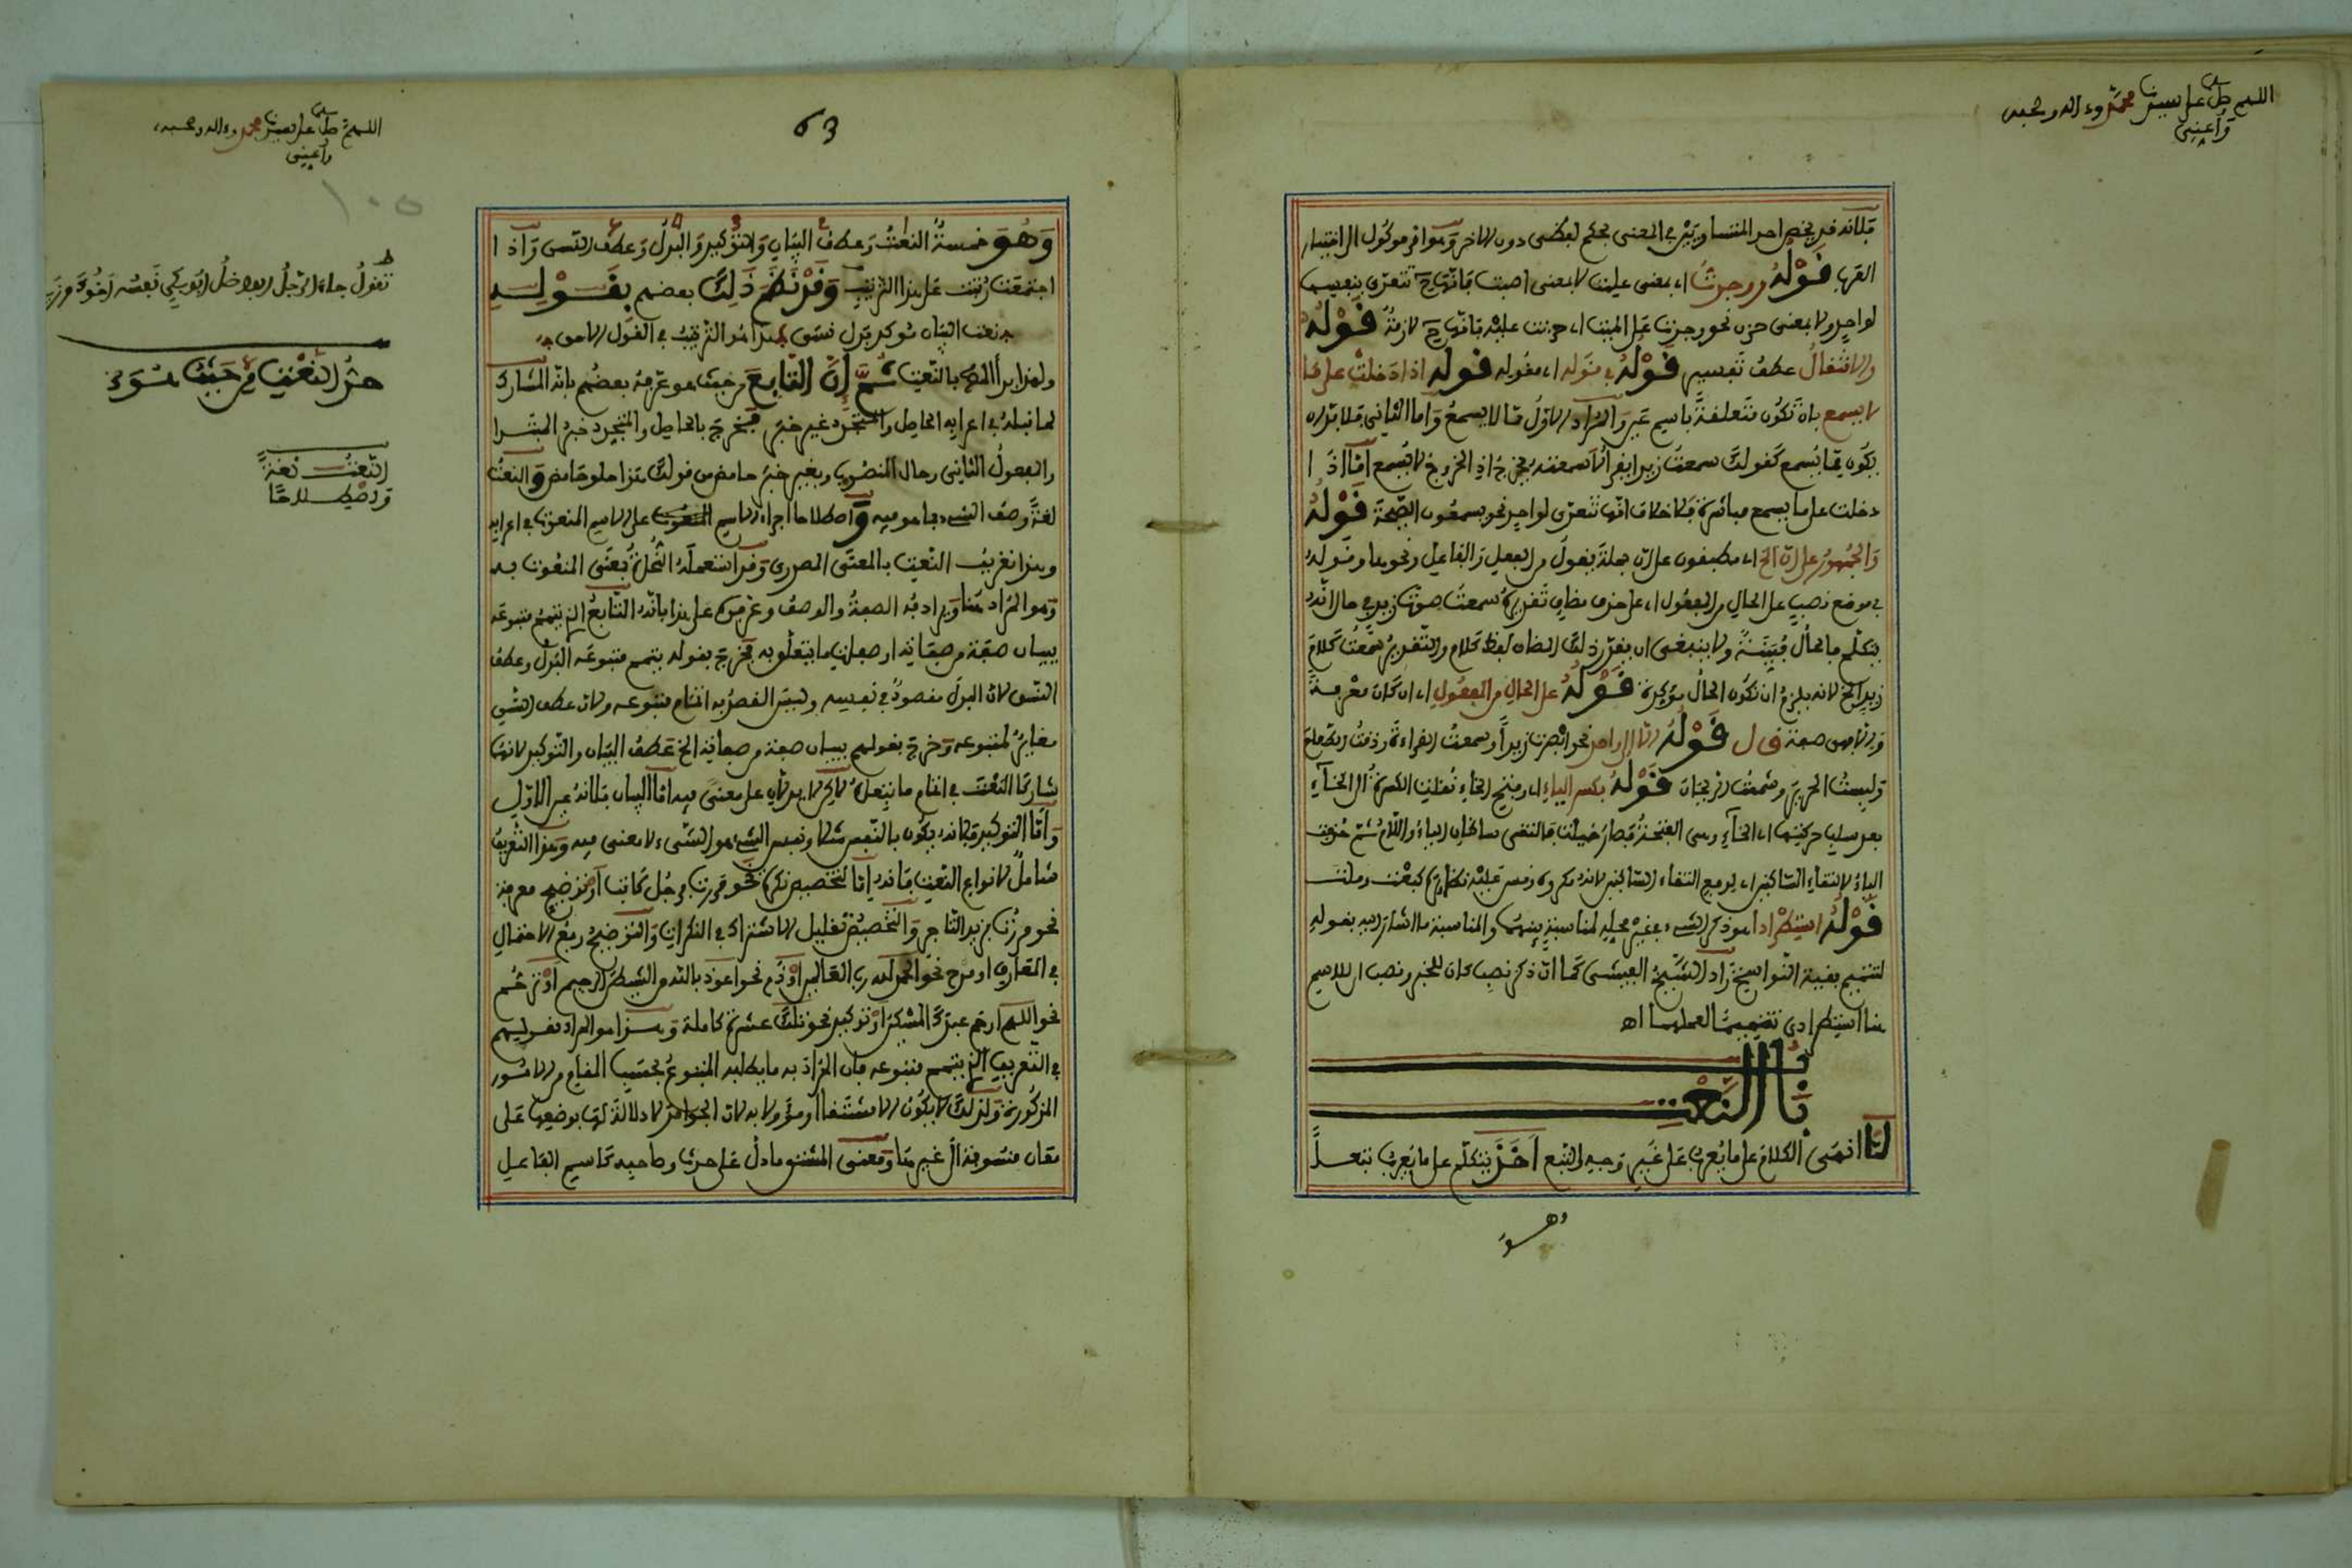 اللهم صل على سيدنا محمد وءاله وصحبه
وأعني
فلانه قد يخص احد المتساويين في المعنى بحكم لفظي دون الاخر وهو اقر موكول الى اختيار
العرب قوله ووجدت اي بمعنى علمت لا بمعنى اصبت فانها ح تتعدى بنفسها
لواحد ولا بمعنى حزن نحو وجدت على الميت اي حزنت عليه فانها ح لازمة قوله
والانتقال عطف تفسير قوله في قوله اي مفعوله قوله اذا دخلت على ما
لا يسمع بان تكون متعلقة باسم عين والمراد الاول مما لا يسمع واما الثاني فلا بد ان
يكون مما يسمع كقولك سمعت زيدا يقرأ سمعته يخرج اذ الخروج لا يسمع اما اذا
دخلت على ما يسمع مباشرة فلا خلاف انها تتعدى لواحد نحو يسمعون الصيحة قوله
والجمهور على ان الخ اي مطبقون على ان جملة يقول من الفعل والفاعل ونحوها وقوله
في موضع نصب على الحال من المفعول اي على حذف مضاف تقديره سمعت صوت زيد في حال انه
يتكلم فالحال مبينة ولا ينبغي ان يقدر ذلك المضاف لفظ كلام والتقدير سمعت كلام
زيد الخ لانه يلزم ان تكون الحال مؤكدة قوله على الحال من المفعول اي ان كان معرفة
والا فهي صفة قال قوله الا الى واحد نحو ابصرت زيدا وسمعت القراءة وذقت الطعام
ولمست الحرير وشممت الريحان قوله بكسر الياء اي وفتح الخاء نقلت الكسرة الى الخاء
بعد سلب حركتها اي الخاء وهي الفتحة فصار خيلت فالتقى ساكنان الياء واللام ثم حذفت
الياء لالتقاء الساكنين اي لدفع التقاء الساكنين لانه مكروه وقس عليه نظائره كبعت وملت
قوله استطرادا هو ذكر الشيء في غير محله لمناسبة بينهما والمناسبة ما اشار اليه بقوله
لتتميم بقية النواسخ زاد الشيخ العبيسي كما ان ذكر نصب كان للخبر ونصب ان للاسم
هنا استطرادي تتميما لعملهما اه
باب النعت
لما انهى الكلام على ما يعرب على غير وجه التبع اخذ يتكلم على ما يعرب تبعا
وهو
اللهم صل على سيدنا محمد وءاله وصحبه
وأعني
63
١٠٥
وهو خمسة النعت وعطف البيان والتوكيد والبدل وعطف النسق واذا
اجتمعت رتبت على هذا الترتيب وقد نظم ذلك بعضهم بقوله
نعت البيان توكيد بدل نسق هذا هو الترتيب في القول الاحق
ولهذا بدأ المص بالنعت ثم ان التابع من حيث هو عرفه بعضهم بانه المشارك
لما قبله في اعرابه الحاصل والمتجدد غير خبر فيخرج بالحاصل والمتجدد خبر المبتدا
والمفعول الثاني وحال المنصوب وبغير خبر حامض من قولك هذا حلو حامض والنعت
لغة وصف الشيء بما هو فيه واصطلاحا اجراء الاسم المنعوت على الاسم المنعوت في اعرابه
وهذا تعريف النعت بالمعنى المصدري وقد استعمله النحاة بمعنى المنعوت به
وهو المراد هنا ويرادفه الصفة والوصف وعرفوه على هذا بانه التابع الذي يتمم متبوعه
ببيان صفة من صفاته او صفات ما يتعلق به فخرج بقوله يتمم متبوعه البدل وعطف
النسق لان البدل مقصود في نفسه وليس القصد به اتمام متبوعه ولان عطف النسق
مغاير لمتبوعه وخرج بقولهم ببيان صفة من صفاته الخ عطف البيان والتوكيد لانهما
شاركا النعت في اتمام ما يتبعانه لكن لا يدلان على معنى فيه اما البيان فلانه عين الاول
واما التوكيد فلانه يكون بالنفس مثلا ونفس الشيء هو الشيء لا معنى فيه وهذا التعريف
شامل لانواع النعت فانه اما لتخصيص نكرة نحو مررت برجل كاتب او توضيح معرفة
نحو مررت بزيد التاجر والتخصيص تقليل الاشتراك في النكرات والتوضيح رفع الاحتمال
في المعارف او مدح نحو الحمد لله رب العالمين او ذم نحو اعوذ بالله من الشيطان الرجيم او ترحم
نحو اللهم ارحم عبدك المسكين او توكيد نحو تلك عشرة كاملة وهذا هو المراد بقولهم
في التعريف الذي يتمم متبوعه فان المراد به ما يطلبه المتبوع بحسب المقام من الامور
المذكورة ولذلك لا يكون الا مشتقا او مؤولا به لان الجوامد لا دلالة لها بوضعها على
معان منسوبة الى غيرها ومعنى المشتق ما دل على حدث وصاحبه كاسم الفاعل
تقول جاء الرجل الفاضل ابو بكر نفسه اخوك وزيد
حد النعت من حيث هو
النعت لغة
واصطلاحا